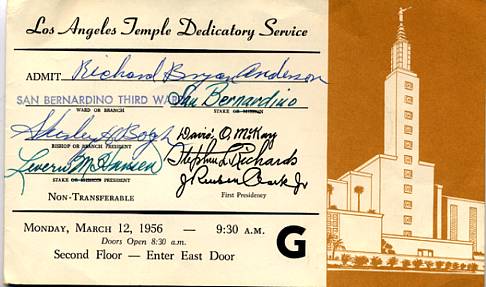 Los Angeles Temple Dedicatory Service
ADMIT Richard Bryan Anderson
SAN BERNARDINO THIRD WARD San Bernardino
WARD OR BRANCH STAKE OR MISSION
BISHOP OR BRANCH PRESIDENT
David O. McKay
Stephen L Richards
STAKE OR MISSION PRESIDENT
J Reuben Clark Jr
NON-TRANSFERABLE First Presidency
MONDAY, MARCH 12, 1956 — 9:30 A.M.
Doors Open 8:30 a.m.
SECOND FLOOR — ENTER EAST DOOR
G